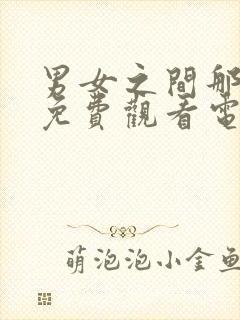 男女之間那
免費觀看電
萌泡泡小金魚